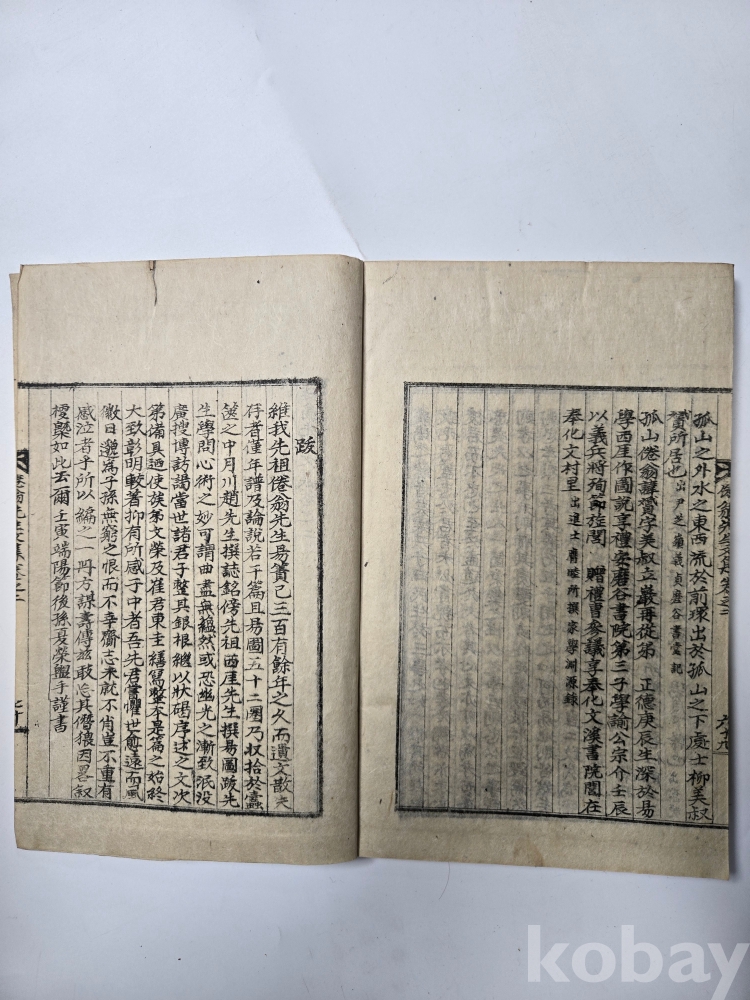 孤山之外水之東西流於前環出於孤山之下處士柳美叔
贇所居也
孤山倦翁諱贇字美叔立巖再從弟 正德庚辰生深於易
學西厓作圖說享禮安磨谷書院第三子學諭公宗介壬辰
以義兵將殉節㫌閭 贈禮曹參議享奉化文溪書院閭在
奉化文村里 出進士 膺睦所撰家學淵源錄
倦翁先生文集卷之二
六十九
跋
維我先祖倦翁先生易簀已三百有餘年之久而遺文散失
存者僅年譜及論說若干篇且易圖五十二圈乃収拾於蠹
篋之中月川趙先生撰誌銘傍先祖西厓先生撰易圖跋先
生學問心術之妙可謂曲盡無蘊然或恐幽光之漸致泯沒
廣搜博訪謁當世諸君子整其銀根繼以狀碣序述之文次
第備具迺使族弟文榮及崔君東主繕寫整本是篇之始終
大致彰明較著抑有所感于中者吾先君嘗懼世愈遠而風
徽日邈爲子孫無窮之恨而不幸齎志未就不肖豈不重有
感泣者乎所以編之一冊方謀壽傳玆敢忘其僭猥因畧叙
梗槩如此云爾 壬寅端陽節後孫夏榮盥手謹書
倦翁先生文集卷之二
七十
kobay